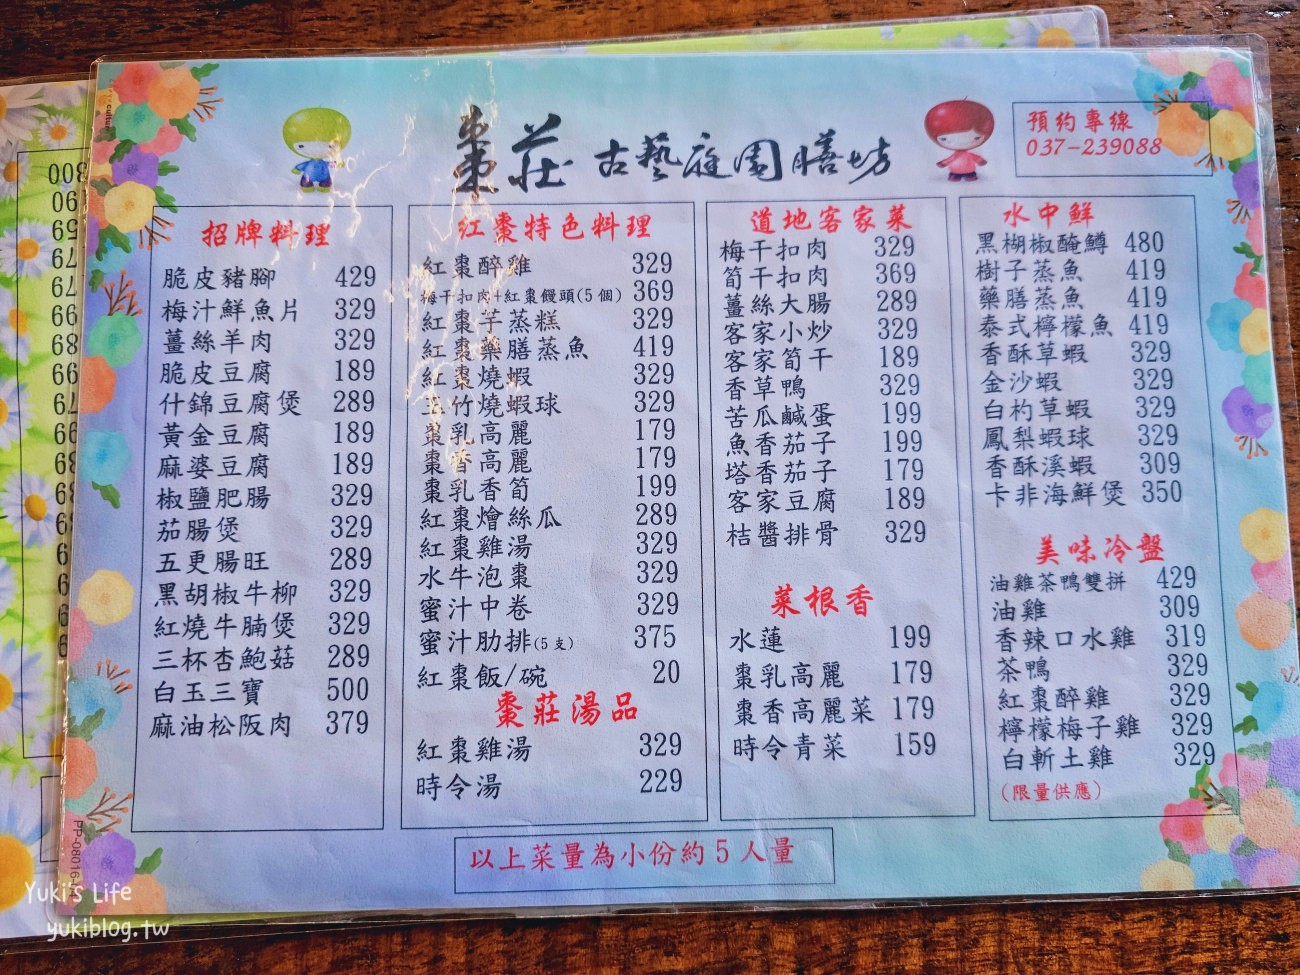 棗莊 古藝庭園膳坊
預約專線
037-239088
招牌料理
脆皮豬腳 429
梅汁鮮魚片 329
薑絲羊肉 329
脆皮豆腐 189
什錦豆腐煲 289
黃金豆腐 189
麻婆豆腐 189
椒鹽肥腸 329
茄腸煲 329
五更腸旺 289
黑胡椒牛柳 329
紅燒牛腩煲 329
三杯杏鮑菇 289
白玉三寶 500
麻油松阪肉 379
紅棗特色料理
紅棗醉雞 329
梅干扣肉+紅棗饅頭(5個) 369
紅棗芋蒸糕 329
紅棗藥膳蒸魚 419
紅棗燒蝦 329
玉竹燒蝦球 329
棗乳高麗 179
棗香高麗 179
棗乳香筍 199
紅棗燴絲瓜 289
紅棗雞湯 329
水牛泡棗 329
蜜汁中卷 329
蜜汁肋排(5支) 375
紅棗飯/碗 20
棗莊湯品
紅棗雞湯 329
時令湯 229
道地客家菜
梅干扣肉 329
筍干扣肉 369
薑絲大腸 289
客家小炒 329
客家筍干 189
香草鴨 329
苦瓜鹹蛋 199
魚香茄子 199
塔香茄子 179
客家豆腐 189
桔醬排骨 329
菜根香
水蓮 199
棗乳高麗 179
棗香高麗菜 179
時令青菜 159
水中鮮
黑椒椒醃鱒 480
樹子蒸魚 419
藥膳蒸魚 419
泰式檸檬魚 419
香酥草蝦 329
金沙蝦 329
白杓草蝦 329
鳳梨蝦球 329
香酥溪蝦 309
卡非海鮮煲 350
美味冷盤
油雞茶鴨雙拼 429
油雞 309
香辣口水雞 319
茶鴨 329
紅棗醉雞 329
檸檬梅子雞 329
白斬土雞 329
(限量供應)
以上菜量為小份約5人量
PP-08016-
Yuki's Life
yukiblog.tw